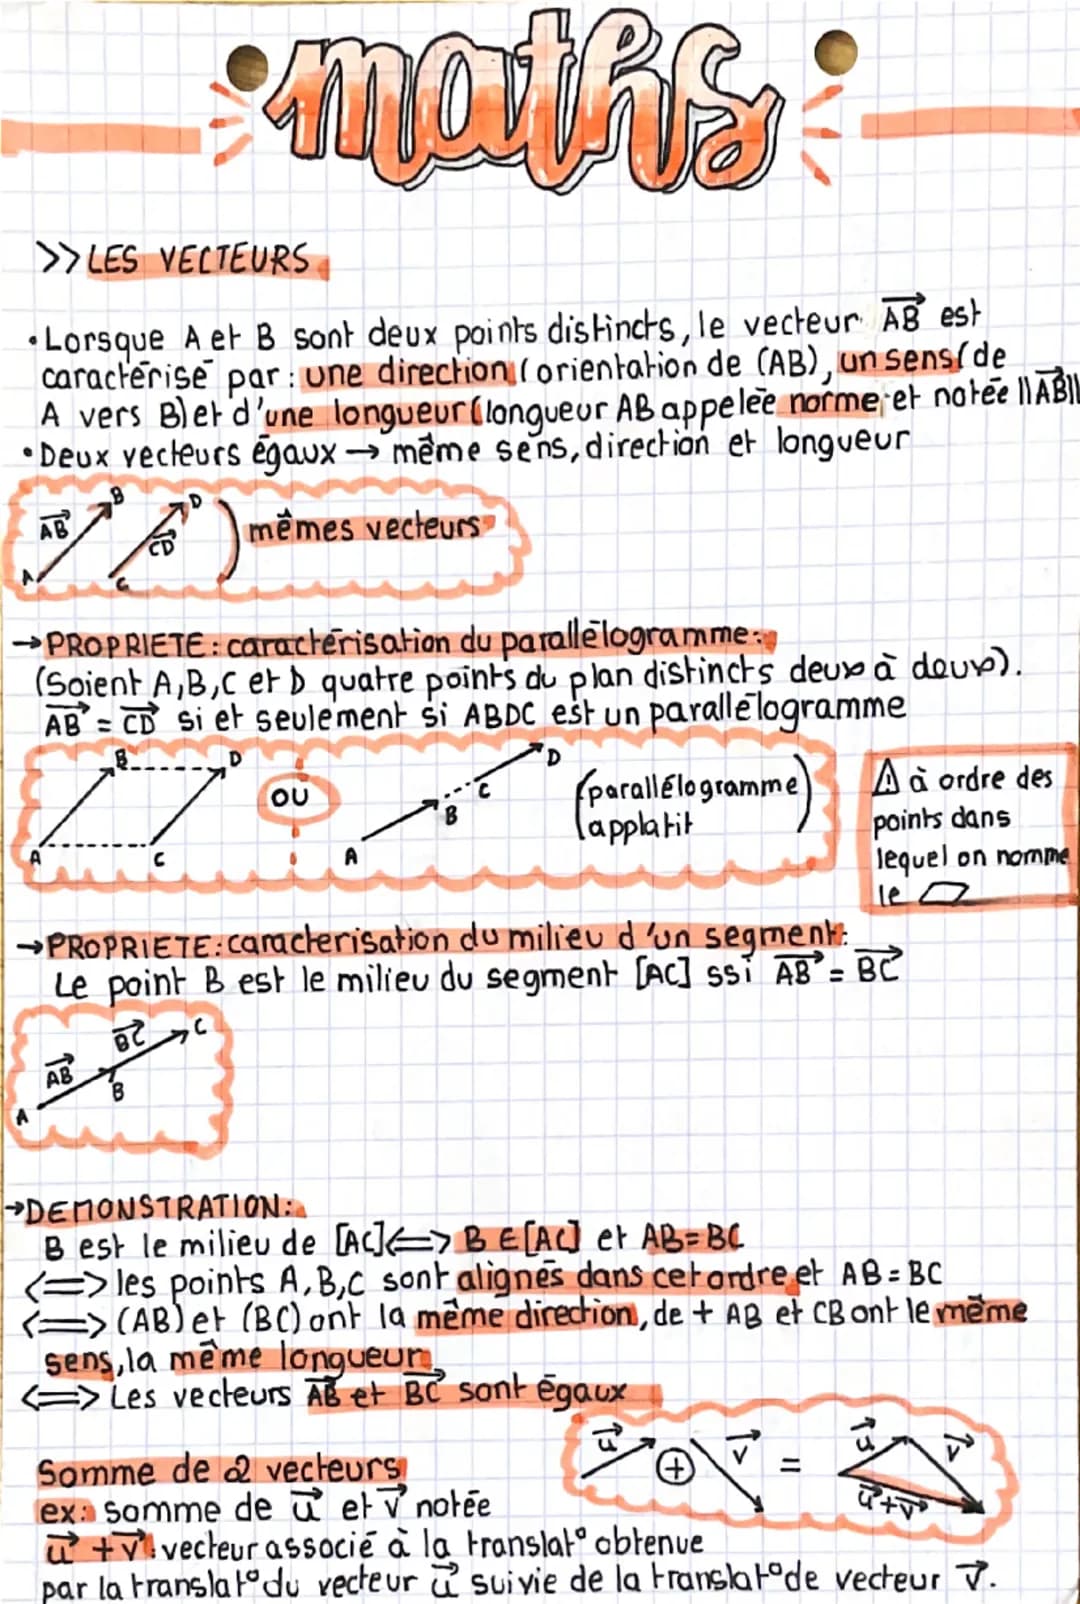 maths
>> LES VECTEURS
• Lorsque A et B sont deux points distincts, le vecteur AB⃗ est
caractérisé par : une direction (orientation de (AB), un sens (de
A vers B) et d'une longueur (longueur AB appelée norme, et notée ||AB⃗||
• Deux vecteurs égaux → même sens, direction et longueur
AB⃗ A B CD⃗ C D mêmes vecteurs
→ PROPRIETE : caractérisation du parallélogramme :
(Soient A, B, C et D quatre points du plan distincts deux à deux).
AB⃗ = CD⃗ si et seulement si ABDC est un parallélogramme
A B C D OU A B C D (parallélogramme
applatit)
⚠ à ordre des
points dans
lequel on nomme
le ▱
→ PROPRIETE : caracterisation du milieu d'un segment :
Le point B est le milieu du segment [AC] ssi AB⃗ = BC⃗
A AB⃗ B BC⃗ C
→ DEMONSTRATION :
B est le milieu de [AC] <=> B ∈ [AC] et AB = BC
<=> les points A, B, C sont alignés dans cet ordre et AB = BC
<=> (AB) et (BC) ont la même direction, de + AB et CB ont le même
sens, la même longueur
<=> Les vecteurs AB⃗ et BC⃗ sont égaux
u⃗ ⊕ v⃗ = u⃗ v⃗ u⃗+v⃗
Somme de 2 vecteurs
ex: somme de u⃗ et v⃗ notée
u⃗ + v⃗ : vecteur associé à la translat° obtenue
par la translat° du vecteur u⃗ suivie de la translat° de vecteur v⃗.